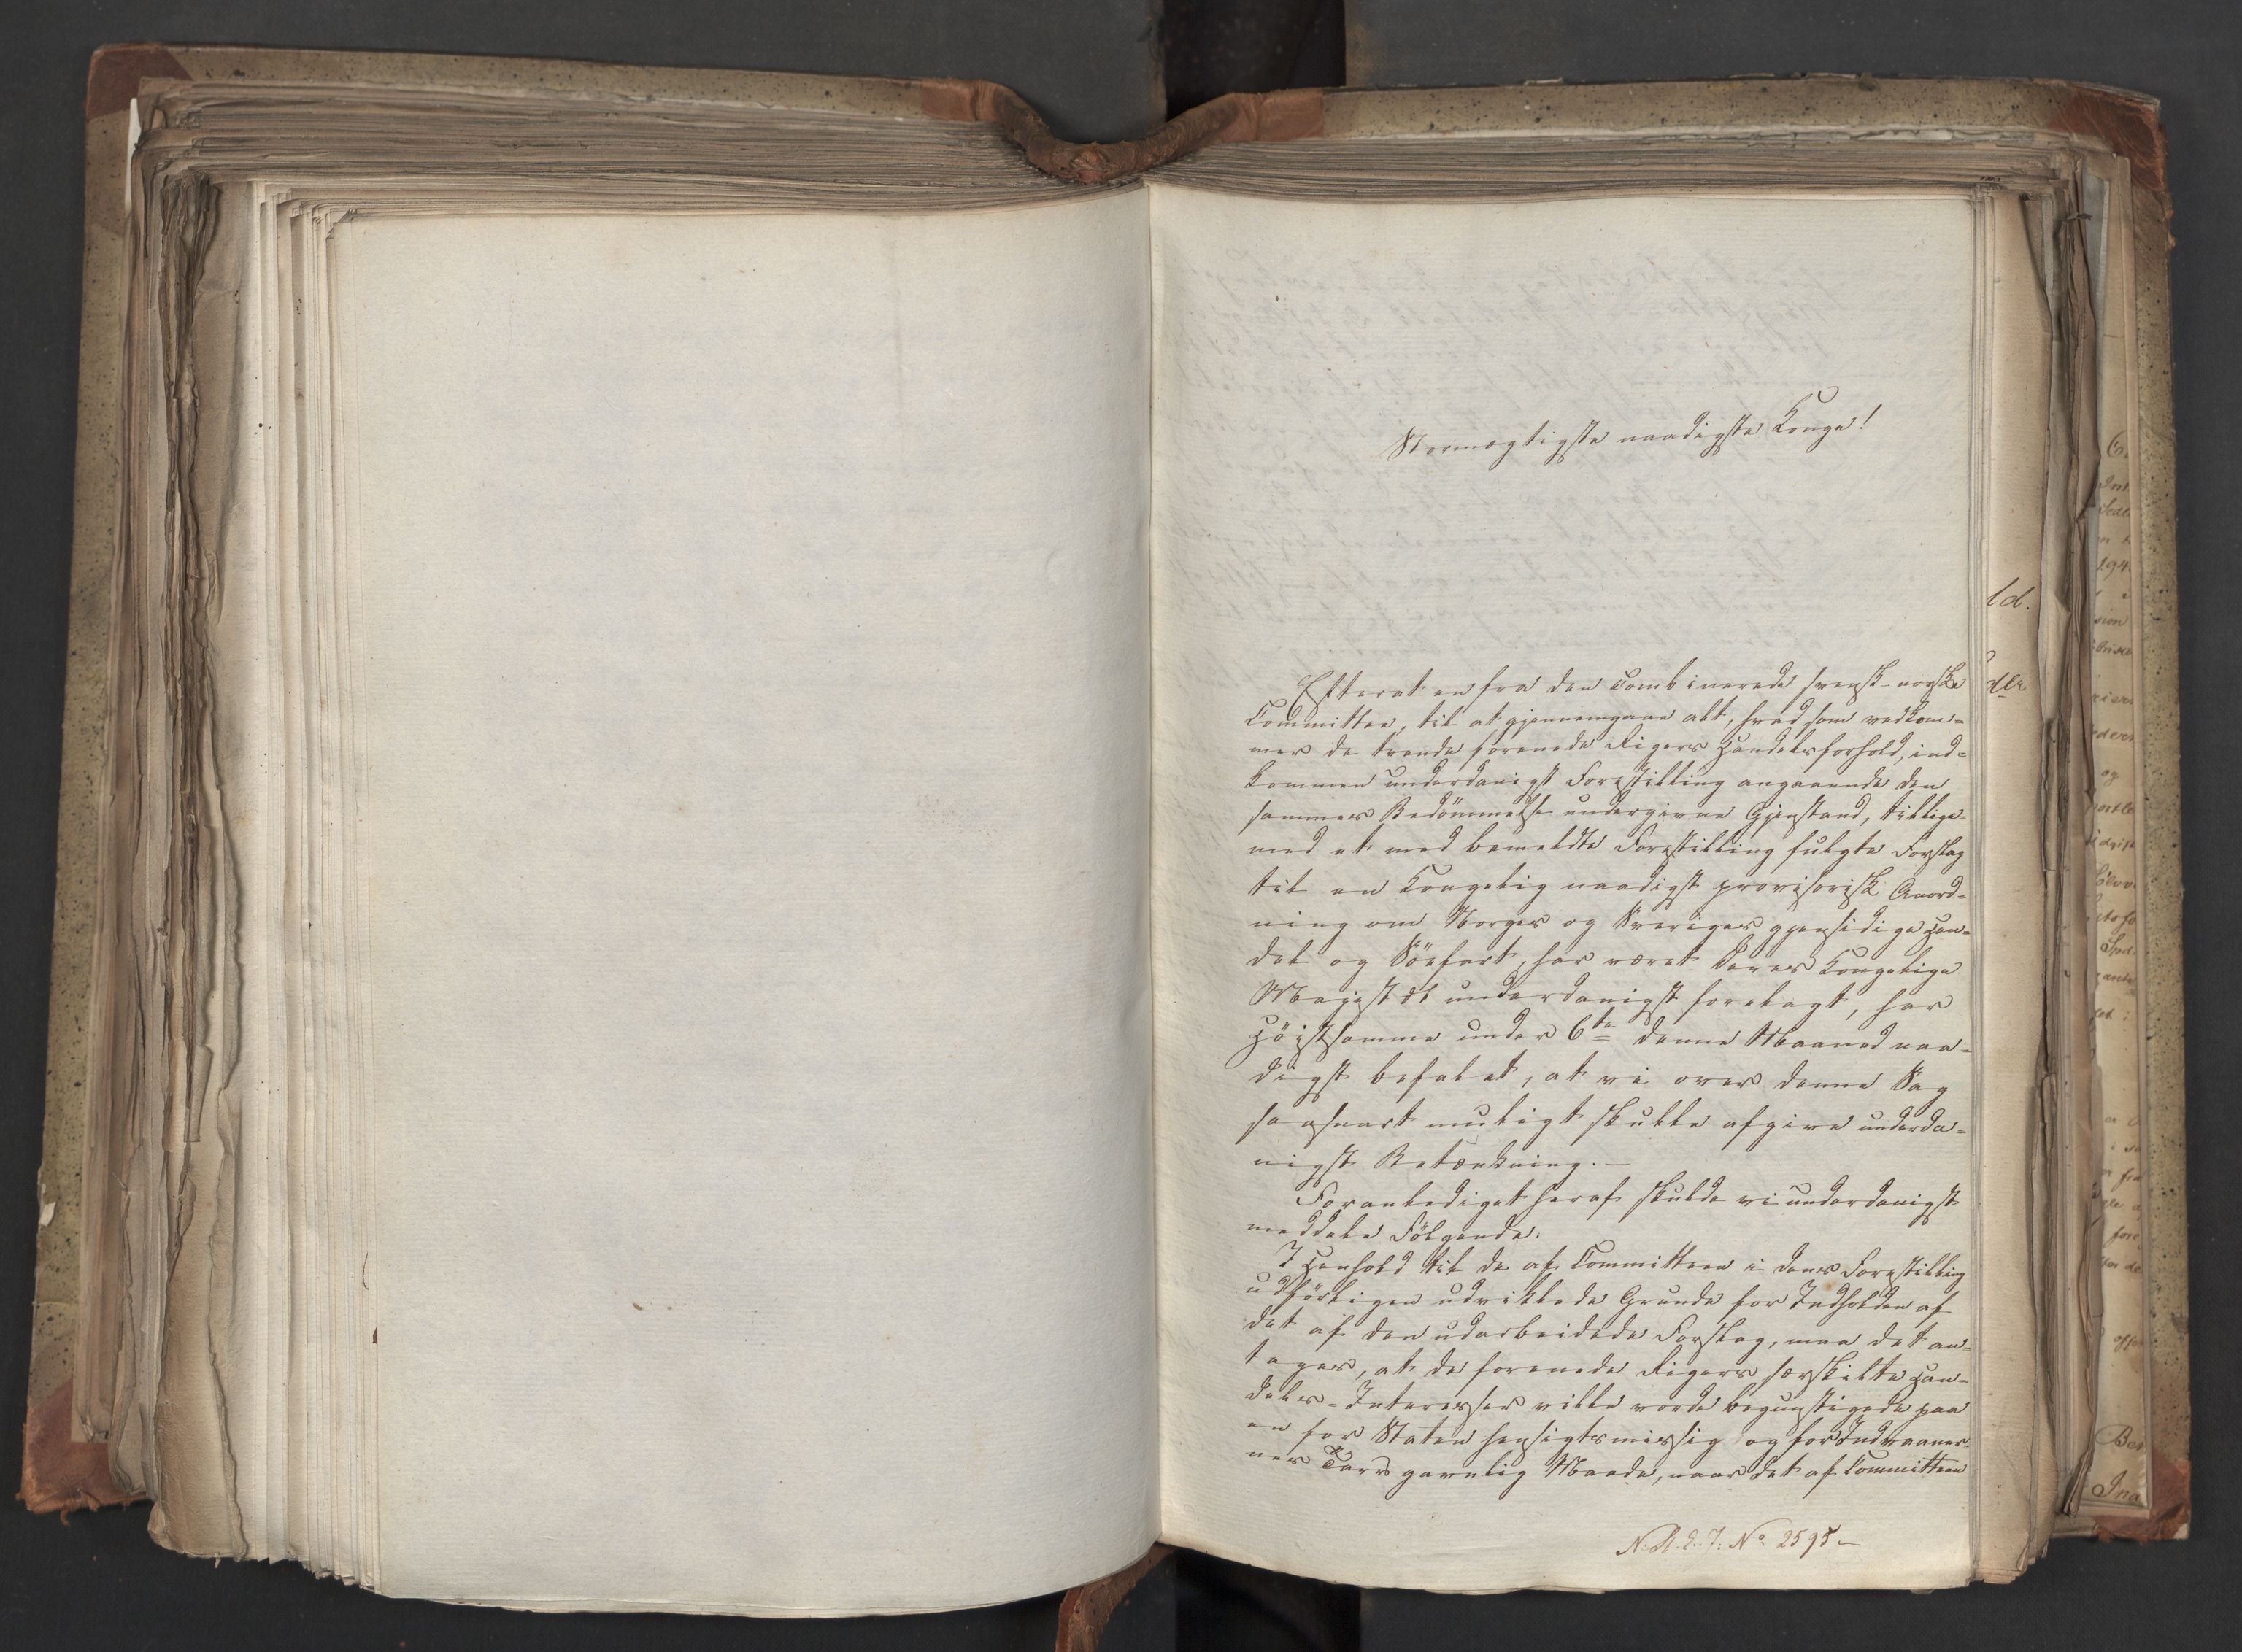 Stormægtigste naadigste Konge!
Efterat en fra den combinerede svensk-norske
Committee, til at gjennemgaae alt, hvad som vedkom-
mer de tvende forenede Rigers Handelsforhold, ind-
kommen underdanigst Forestilling angaaende den
sammes Bedömmelse undergivne Gjenstand, tillige-
med et med bemeldte Forestilling fulgte Forslag
til en Kongelig naadigst provisorisk Anord-
ning om Norges og Sveriges gjensidige Han-
del og Söefart, har været Deres Kongelige
Majestæt underdanigst forelagt, har
Höistsamme under 6te denne Maaned naa-
digst befalet, at vi over denne Sag
saasnart muligt skulle afgive underda-
nigst Betænkning.-
Foranlediget heraf skulde vi underdanigst
meddele Fölgende:
I Henhold til de af Committeen i dens Forestilling
udförligen udviklede Grunde for Indholden af
det af den udarbeidede Forslag, maa det an-
tages, at de forenede Rigers særskilte Han-
dels-Interesser ville vorde begunstigede paa
en for Staten hensigtsmæssig og for Indvaaner-
nes Tarv gavnlig Maade, naar det af Committeen
N. R. E. J. No 2595-
ld.
dle